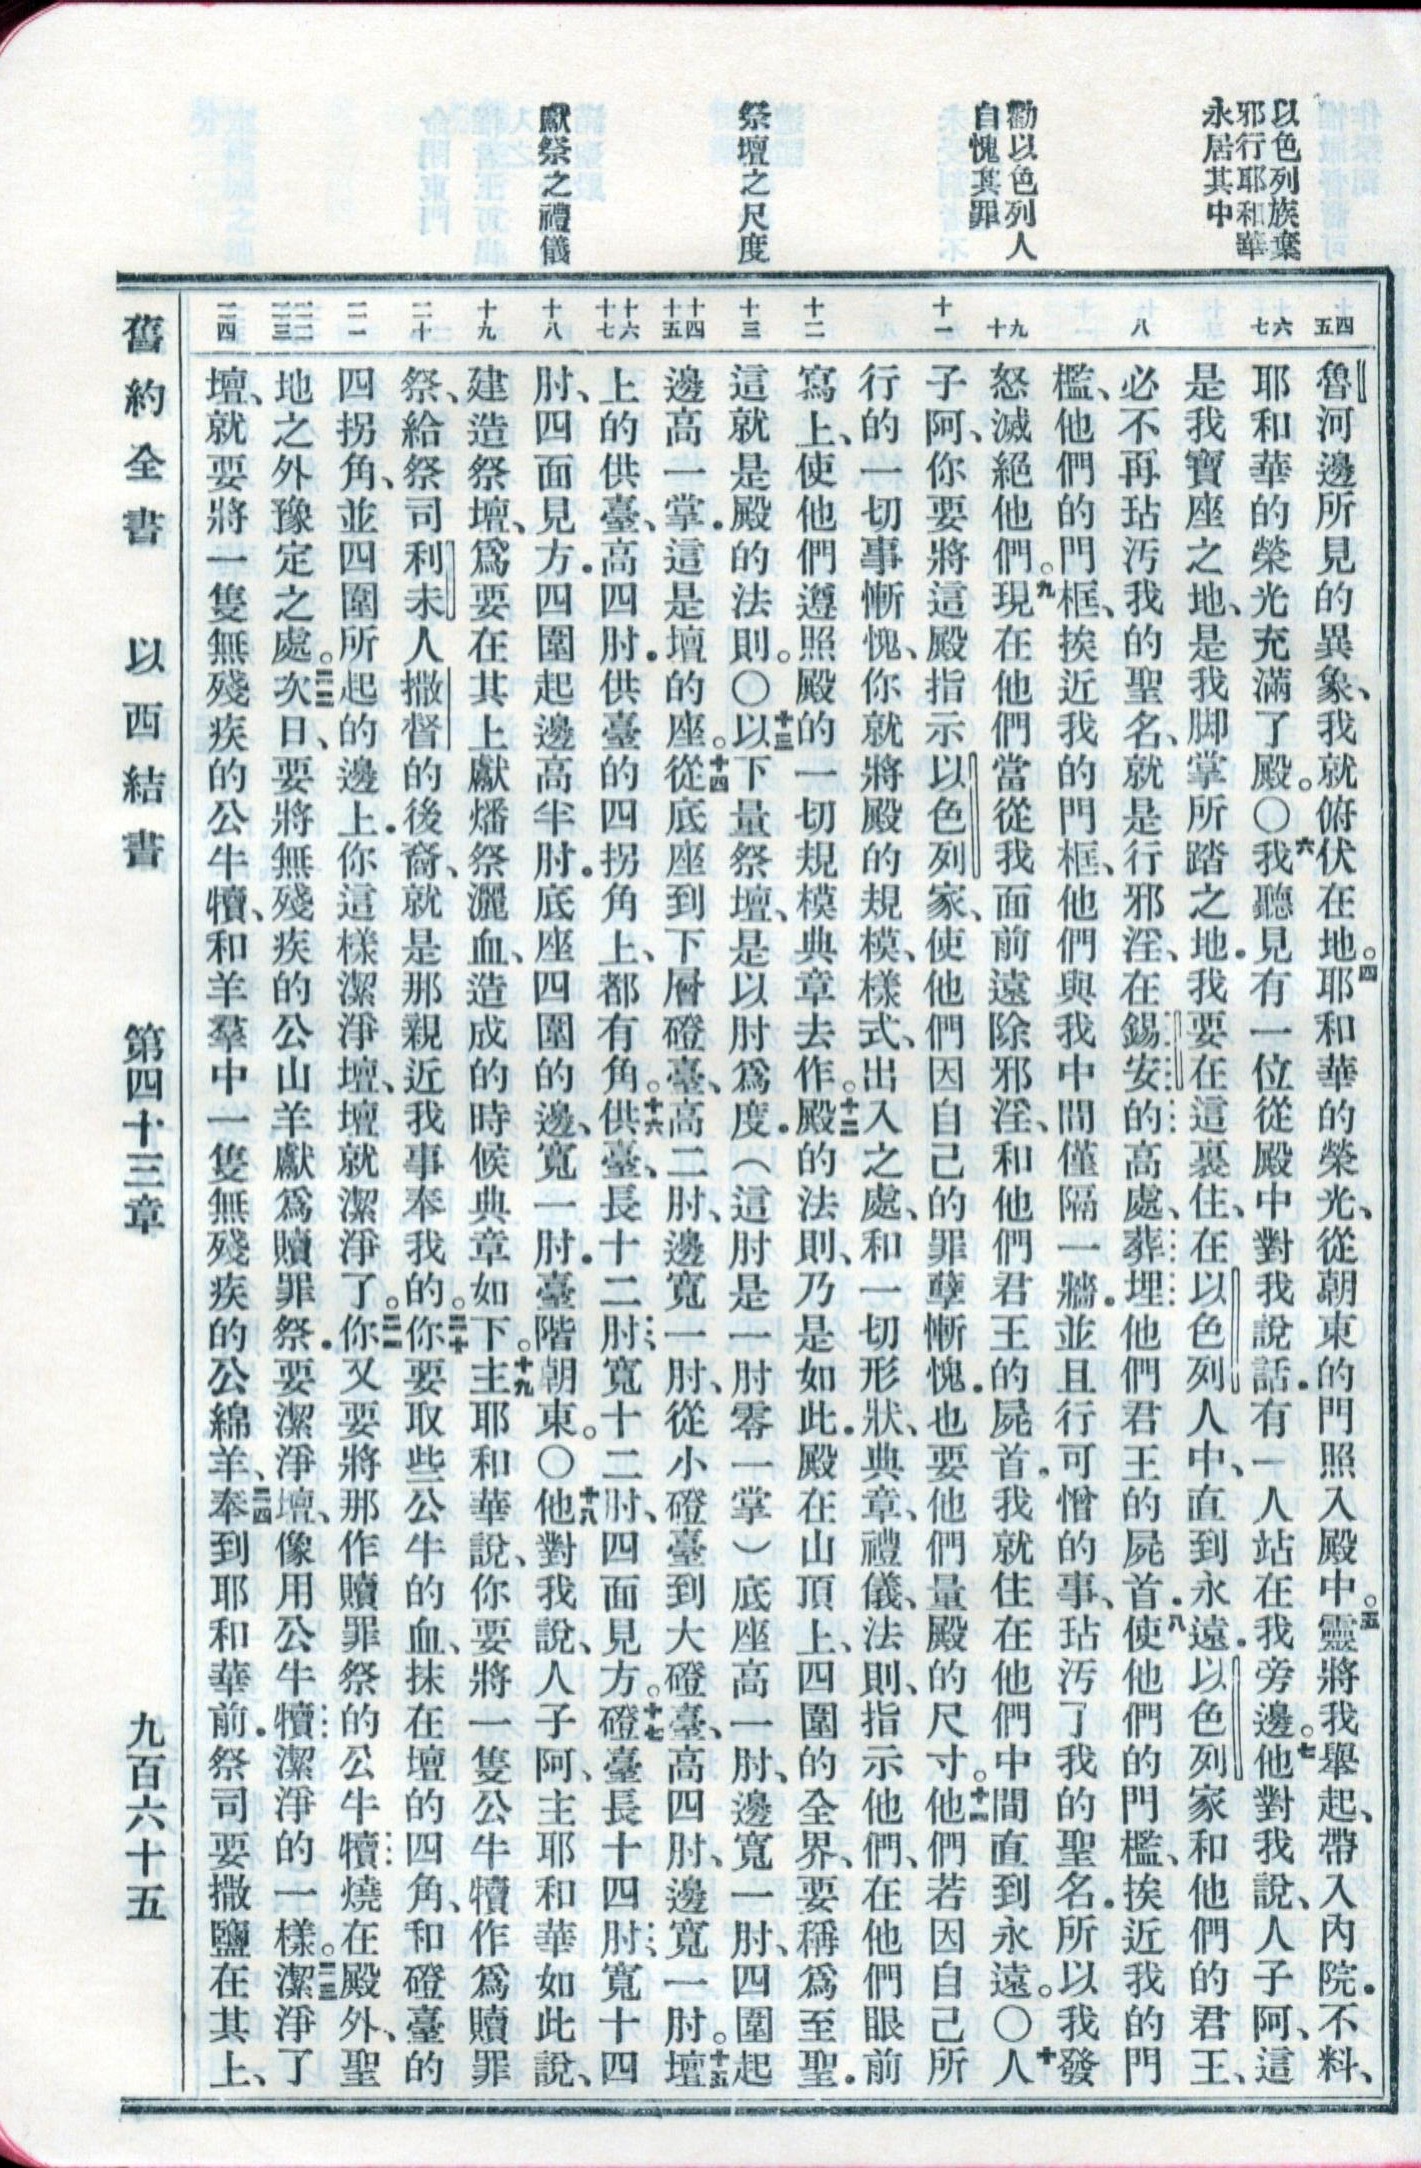 以色列族棄
邪行耶和華
永居其中
勸以色列人
自愧其罪
祭壇之尺度
獻祭之禮儀
四
五
六
七
八
九
十
十一
十二
十三
十四
十五
十六
十七
十八
十九
二十
二一
二二
二三
二四
魯河邊所見的異象、我就俯伏在地。四耶和華的榮光、從朝東的門照入殿中。五靈將我舉起、帶入內院．不料、
耶和華的榮光充滿了殿。〇六我聽見有一位從殿中對我說話．有一人站在我旁邊。七他對我說、人子阿、這
是我寶座之地、是我脚掌所踏之地．我要在這裏住、在以色列人中、直到永遠．以色列家和他們的君王、
必不再玷汚我的聖名、就是行邪淫、在錫安的高處、葬埋他們君王的屍首．八使他們的門檻、挨近我的門
檻、他們的門框、挨近我的門框、他們與我中間僅隔一牆．並且行可憎的事、玷汚了我的聖名．所以我發
怒滅絕他們。九現在他們當從我面前遠除邪淫、和他們君王的屍首．我就住在他們中間直到永遠。〇十人
子阿、你要將這殿指示以色列家、使他們因自己的罪孽慚愧．也要他們量殿的尺寸。十一他們若因自己所
行的一切事慚愧、你就將殿的規模、樣式、出入之處、和一切形狀、典章、禮儀、法則、指示他們、在他們眼前
寫上、使他們遵照殿的一切規模典章去作。十二殿的法則、乃是如此．殿在山頂上、四圍的全界、要稱爲至聖．
這就是殿的法則。〇十三以下量祭壇、是以肘爲度．（這肘是一肘零一掌）底座高一肘、邊寬一肘、四圍起
邊高一掌．這是壇的座。十四從底座到下層磴臺、高二肘、邊寬一肘、從小磴臺到大磴臺、高四肘、邊寬一肘。十五壇
上的供臺、高四肘．供臺的四拐角上、都有角。十六供臺、長十二肘、寬十二肘、四面見方。十七磴臺長十四肘、寬十四
肘、四面見方．四圍起邊高半肘．底座四圍的邊、寬一肘．臺階朝東。〇十八他對我說、人子阿、主耶和華如此說、
建造祭壇、爲要在其上獻燔祭灑血、造成的時候典章如下。十九主耶和華說、你要將一隻公牛犢作爲贖罪
祭、給祭司利未人撒督的後裔、就是那親近我事奉我的。二十你要取些公牛的血、抹在壇的四角、和磴臺的
四拐角、並四圍所起的邊上．你這樣潔淨壇、壇就潔淨了。二一你又要將那作贖罪祭的公牛犢燒在殿外、聖
地之外豫定之處。二二次日、要將無殘疾的公山羊獻爲贖罪祭．要潔淨壇、像用公牛犢潔淨的一樣。二三潔淨了
壇、就要將一隻無殘疾的公牛犢、和羊羣中一隻無殘疾的公綿羊、二四奉到耶和華前．祭司要撒鹽在其上、
舊約全書　以西結書　第四十三章　九百六十五